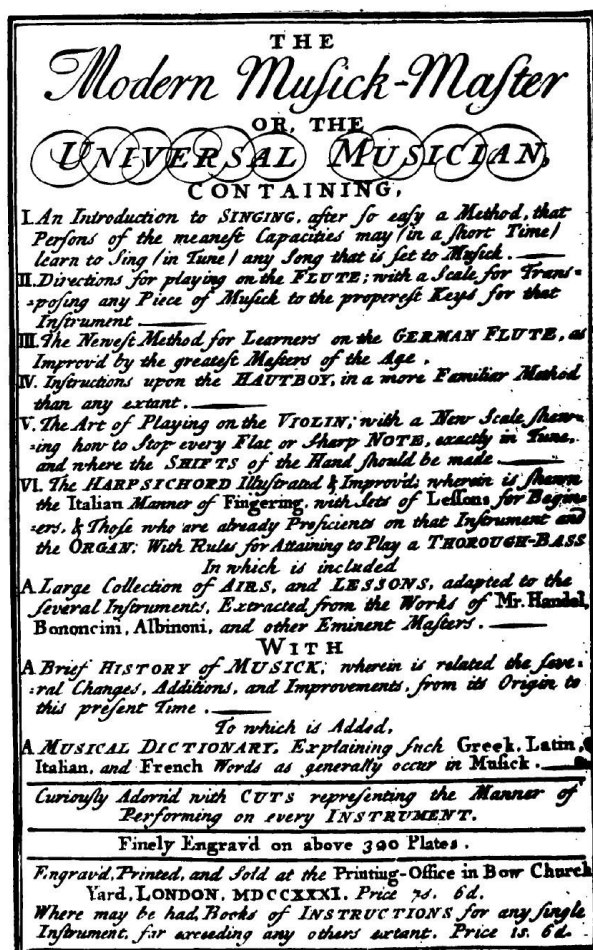 THE
Modern Muſick-Maſter
OR, THE
UNIVERSAL MUSICIAN,
CONTAINING,
I. An Introduction to SINGING, after ſo eaſy a Method, that
Perſons of the meaneſt Capacities may (in a ſhort Time)
learn to Sing (in Tune) any Song that is ſet to Muſick.
II. Directions for playing on the FLUTE; with a Scale for Tranſ-
-poſing any Piece of Muſick to the propereſt Keys for that
Inſtrument
III. The Neweſt Method for Learners on the GERMAN FLUTE, as
Improv'd by the greateſt Maſters of the Age.
IV. Inſtructions upon the HAUTBOY, in a more Familiar Method
than any extant.
V. The Art of Playing on the VIOLIN; with a New Scale ſhew-
ing how to Stop every Flat or Sharp NOTE, exactly in Tune,
and where the SHIFTS of the Hand ſhould be made
VI. The HARPSICHORD Illuſtrated & Improv'd; wherein is ſhewn
the Italian Manner of Fingering, with Sets of Leſſons for Begin-
-ers, & Thoſe who are already Proficients on that Inſtrument and
the ORGAN; With Rules for Attaining to Play a THOROUGH-BASS
In which is included
A Large Collection of AIRS, and LESSONS, adapted to the
ſeveral Inſtruments, Extracted from the Works of Mr. Handel,
Bononcini, Albinoni, and other Eminent Maſters.
WITH
A Brief HISTORY of MUSICK; wherein is related the ſeve-
-ral Changes, Additions, and Improvements, from its Origin to
this preſent Time.
To which is Added,
A MUSICAL DICTIONARY, Explaining ſuch Greek, Latin,
Italian, and French Words as generally occur in Muſick.
Curiouſly Adorn'd with CUTS repreſenting the Manner of
Performing on every INSTRUMENT.
Finely Engrav'd on above 320 Plates.
Engrav'd, Printed, and Sold at the Printing-Office in Bow Church
Yard, LONDON, MDCCXXXI. Price 7s. 6d.
Where may be had, Books of INSTRUCTIONS for any ſingle
Inſtrument, far exceeding any others extant. Price 1s. 6d.